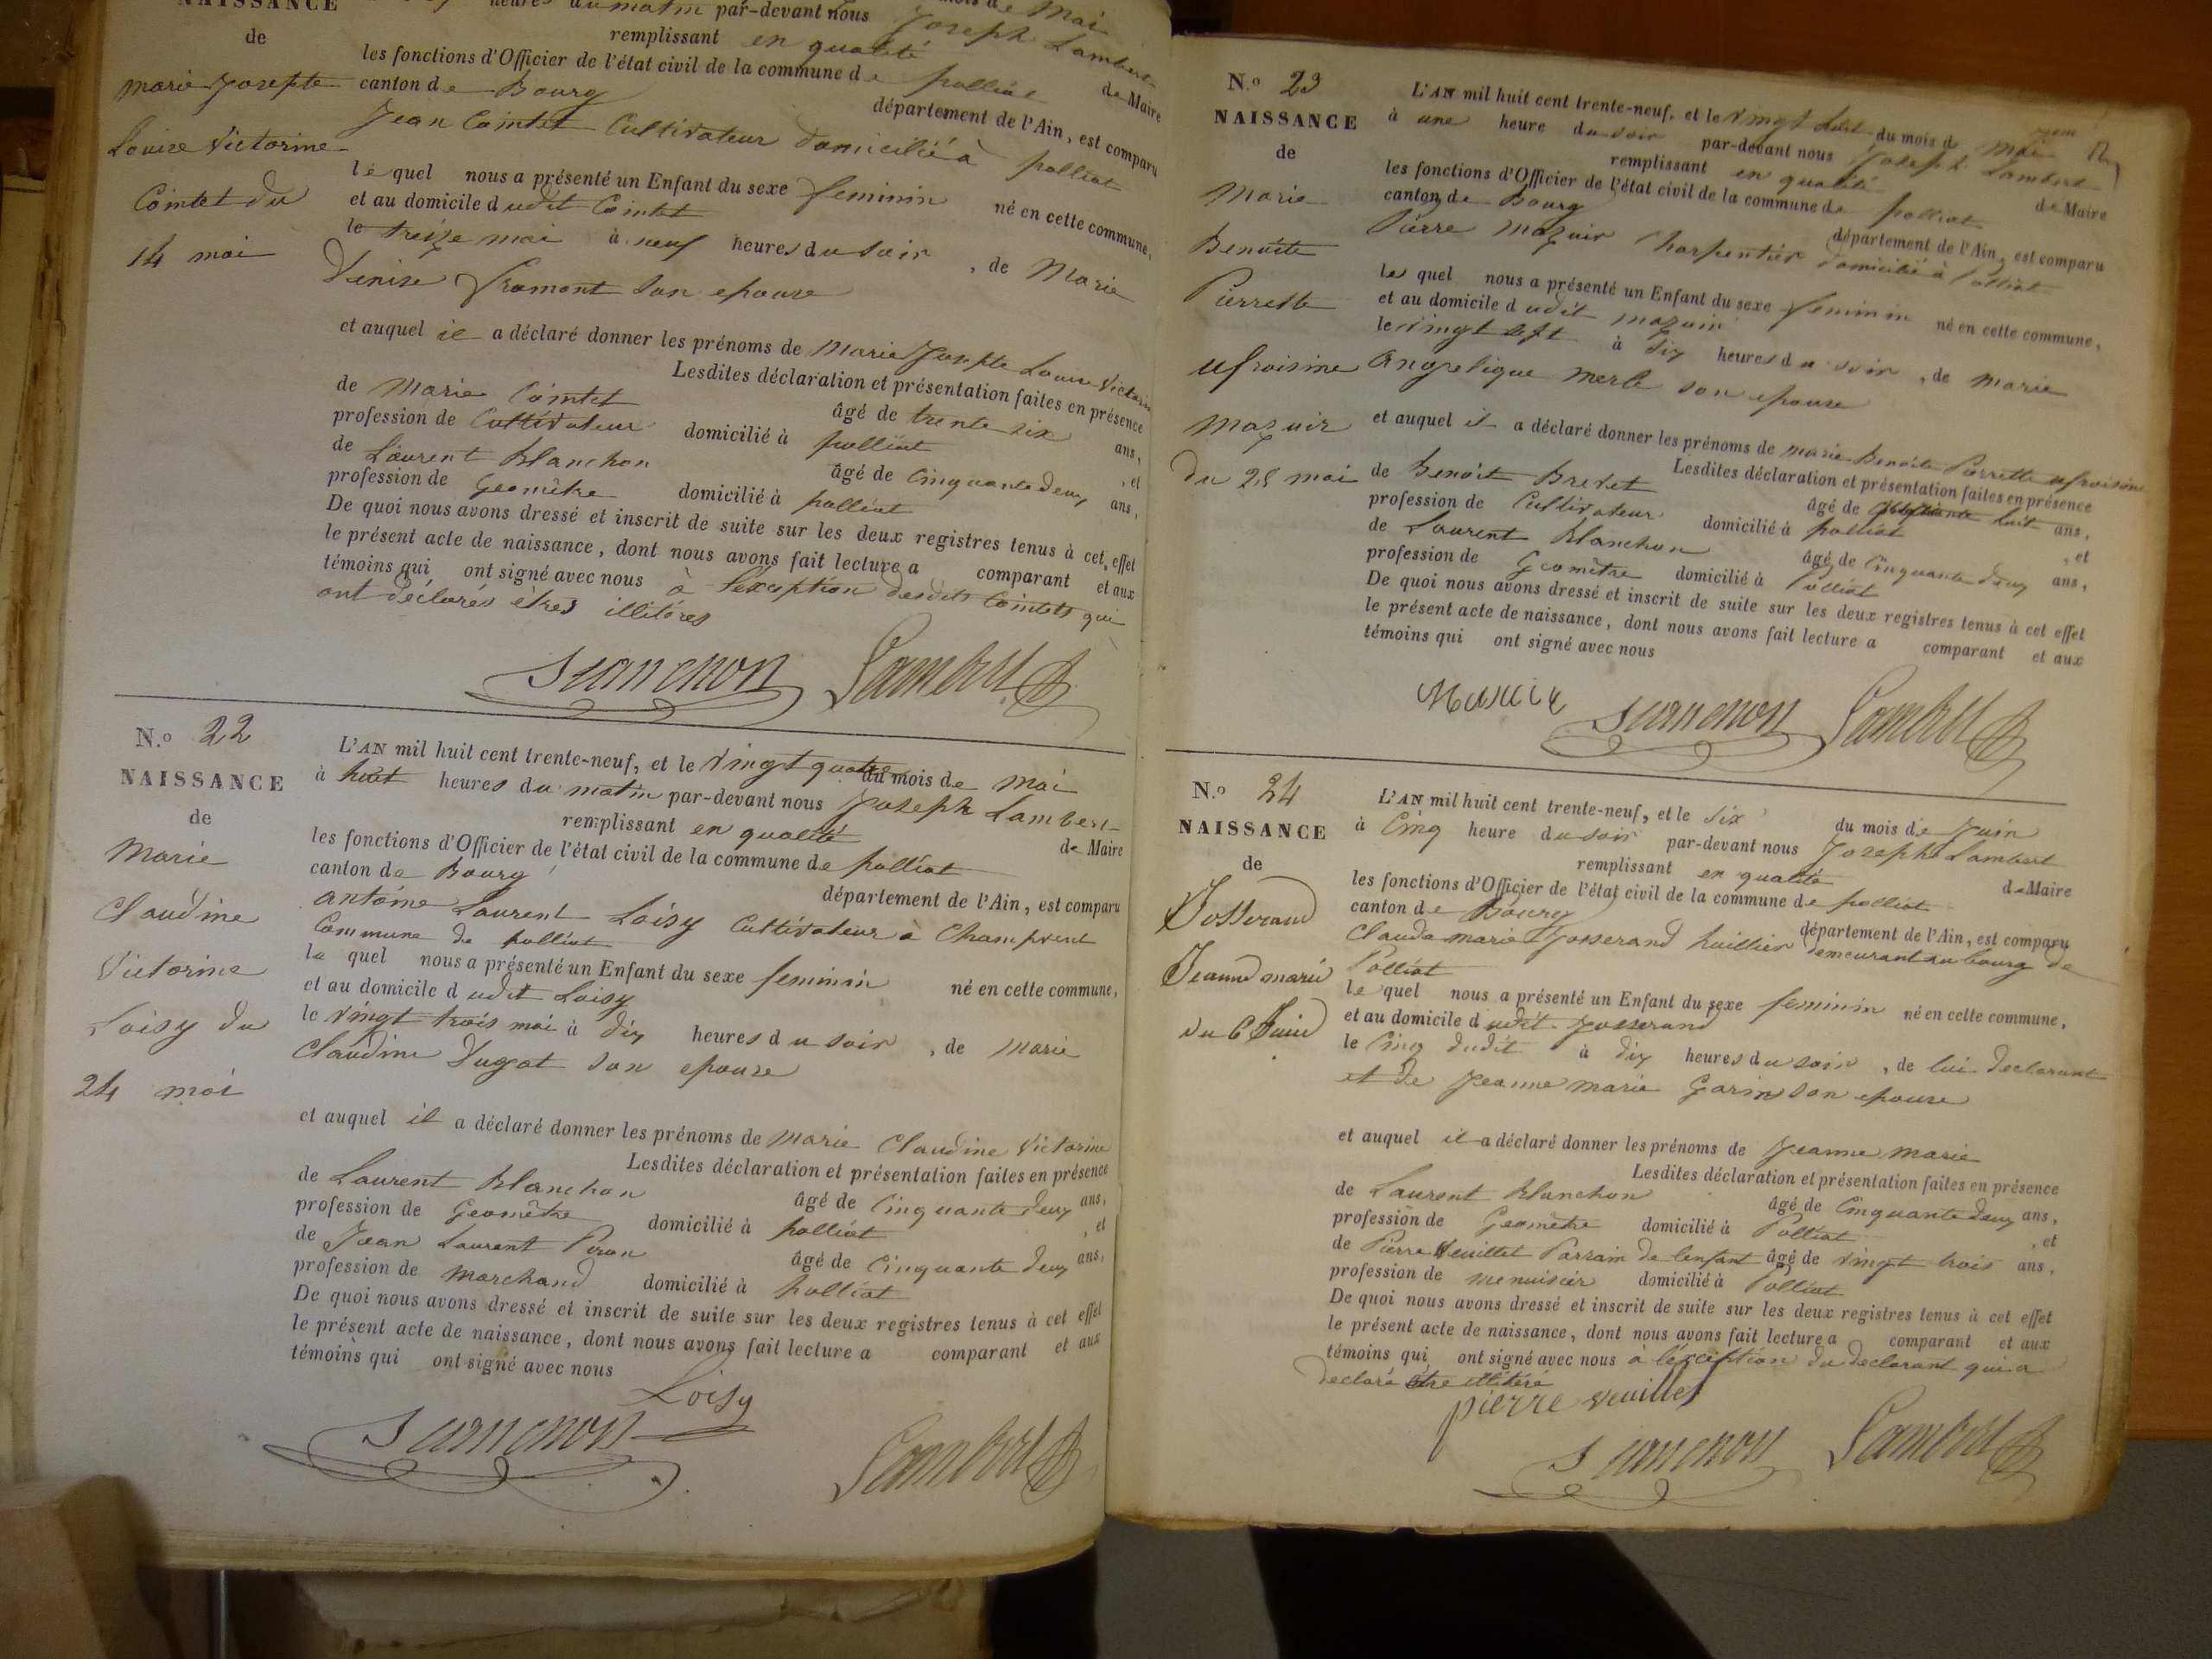 NAISSANCE
de
marie Josepte
Louise Victorine
Comtet du
14 mai
mois de Mai
heures du matin par-devant nous Joseph Lambert
remplissant en qualité de Maire
les fonctions d'Officier de l'état civil de la commune de polliat
canton de Bourg département de l'Ain, est comparu
Jean Comtet Cultivateur domicilié à polliat
lequel nous a présenté un Enfant du sexe feminin né en cette commune,
et au domicile dudit Comtet
le treize mai à neuf heures du soir, de Marie
Denise Fromont son epouse
et auquel il a déclaré donner les prénoms de Marie Josepte Louise Victorine
Lesdites déclaration et présentation faites en présence
de Marie Comtet âgé de trente six ans,
profession de Cultivateur domicilié à polliat, et
de Laurent Blanchon âgé de Cinquante deux ans,
profession de Geomètre domicilié à polliat
De quoi nous avons dressé et inscrit de suite sur les deux registres tenus à cet effet
le présent acte de naissance, dont nous avons fait lecture a comparant et aux
témoins qui ont signé avec nous à l'éxception desdits Comtets qui
ont déclarés êtres illitéres
Blanchon Lambert
N.º 22
NAISSANCE
de
Marie
Claudine
Victorine
Loisy du
24 mai
L'AN mil huit cent trente-neuf, et le vingt quatre du mois de Mai
à huit heures du matin par-devant nous Joseph Lambert
remplissant en qualité de Maire
les fonctions d'Officier de l'état civil de la commune de polliat
canton de Bourg département de l'Ain, est comparu
antoine Laurent Loisy Cultivateur à Champvent
Commune de polliat
le quel nous a présenté un Enfant du sexe feminin né en cette commune,
et au domicile dudit Loisy
le vingt trois mai à dix heures du soir, de Marie
Claudine Dugat son epouse
et auquel il a déclaré donner les prénoms de Marie Claudine Victorine
Lesdites déclaration et présentation faites en présence
de Laurent Blanchon âgé de Cinquante deux ans,
profession de Geomètre domicilié à polliat, et
de Jean Laurent Piron âgé de Cinquante deux ans,
profession de Marchand domicilié à polliat
De quoi nous avons dressé et inscrit de suite sur les deux registres tenus à cet effet
le présent acte de naissance, dont nous avons fait lecture a comparant et aux
témoins qui ont signé avec nous
Loisy
Blanchon Lambert
N.º 23
NAISSANCE
de
Marie
Benoite
Pierrette
ufroisine
Mazuir
du 28 mai
L'AN mil huit cent trente-neuf, et le vingt huit du mois de Mai
à une heure du soir par-devant nous Joseph Lambert
remplissant en qualité de Maire
les fonctions d'Officier de l'état civil de la commune de polliat
canton de Bourg département de l'Ain, est comparu
Pierre Mazuir Charpentier domicilié à Polliat
le quel nous a présenté un Enfant du sexe feminin né en cette commune,
et au domicile dudit mazuir
le vingt sept à dix heures du soir, de Marie
angelique Merle son epouse
et auquel il a déclaré donner les prénoms de Marie Benoite Pierrette ufroisine
Lesdites déclaration et présentation faites en présence
de Benoit Brevet âgé de huit ans,
profession de Cultivateur domicilié à polliat, et
de Laurent Blanchon âgé de Cinquante deux ans,
profession de Geomètre domicilié à Polliat
De quoi nous avons dressé et inscrit de suite sur les deux registres tenus à cet effet
le présent acte de naissance, dont nous avons fait lecture a comparant et aux
témoins qui ont signé avec nous
Blanchon Lambert
N.º 24
NAISSANCE
de
Josserand
Jeanne marie
du 6 Juin
L'AN mil huit cent trente-neuf, et le six du mois de Juin
à Cinq heure du soir par-devant nous Joseph Lambert
remplissant en qualité de Maire
les fonctions d'Officier de l'état civil de la commune de polliat
canton de Bourg département de l'Ain, est comparu
Claude marie Josserand huillier demeurant au bourg de
Polliat
le quel nous a présenté un Enfant du sexe feminin né en cette commune,
et au domicile dudit Josserand
le Cinq dudit à dix heures du soir, de lui declarant
et de Jeanne marie Garin son epouse
et auquel il a déclaré donner les prénoms de Jeanne Marie
Lesdites déclaration et présentation faites en présence
de Laurent Blanchon âgé de Cinquante deux ans,
profession de Geomètre domicilié à Polliat, et
de Pierre Veuillet Parrain de lenfant âgé de vingt trois ans,
profession de menuisier domicilié à Polliat
De quoi nous avons dressé et inscrit de suite sur les deux registres tenus à cet effet
le présent acte de naissance, dont nous avons fait lecture a comparant et aux
témoins qui ont signé avec nous à l'éxception du declarant qui a
declaré être illitéré
pierre veuillet
Blanchon Lambert